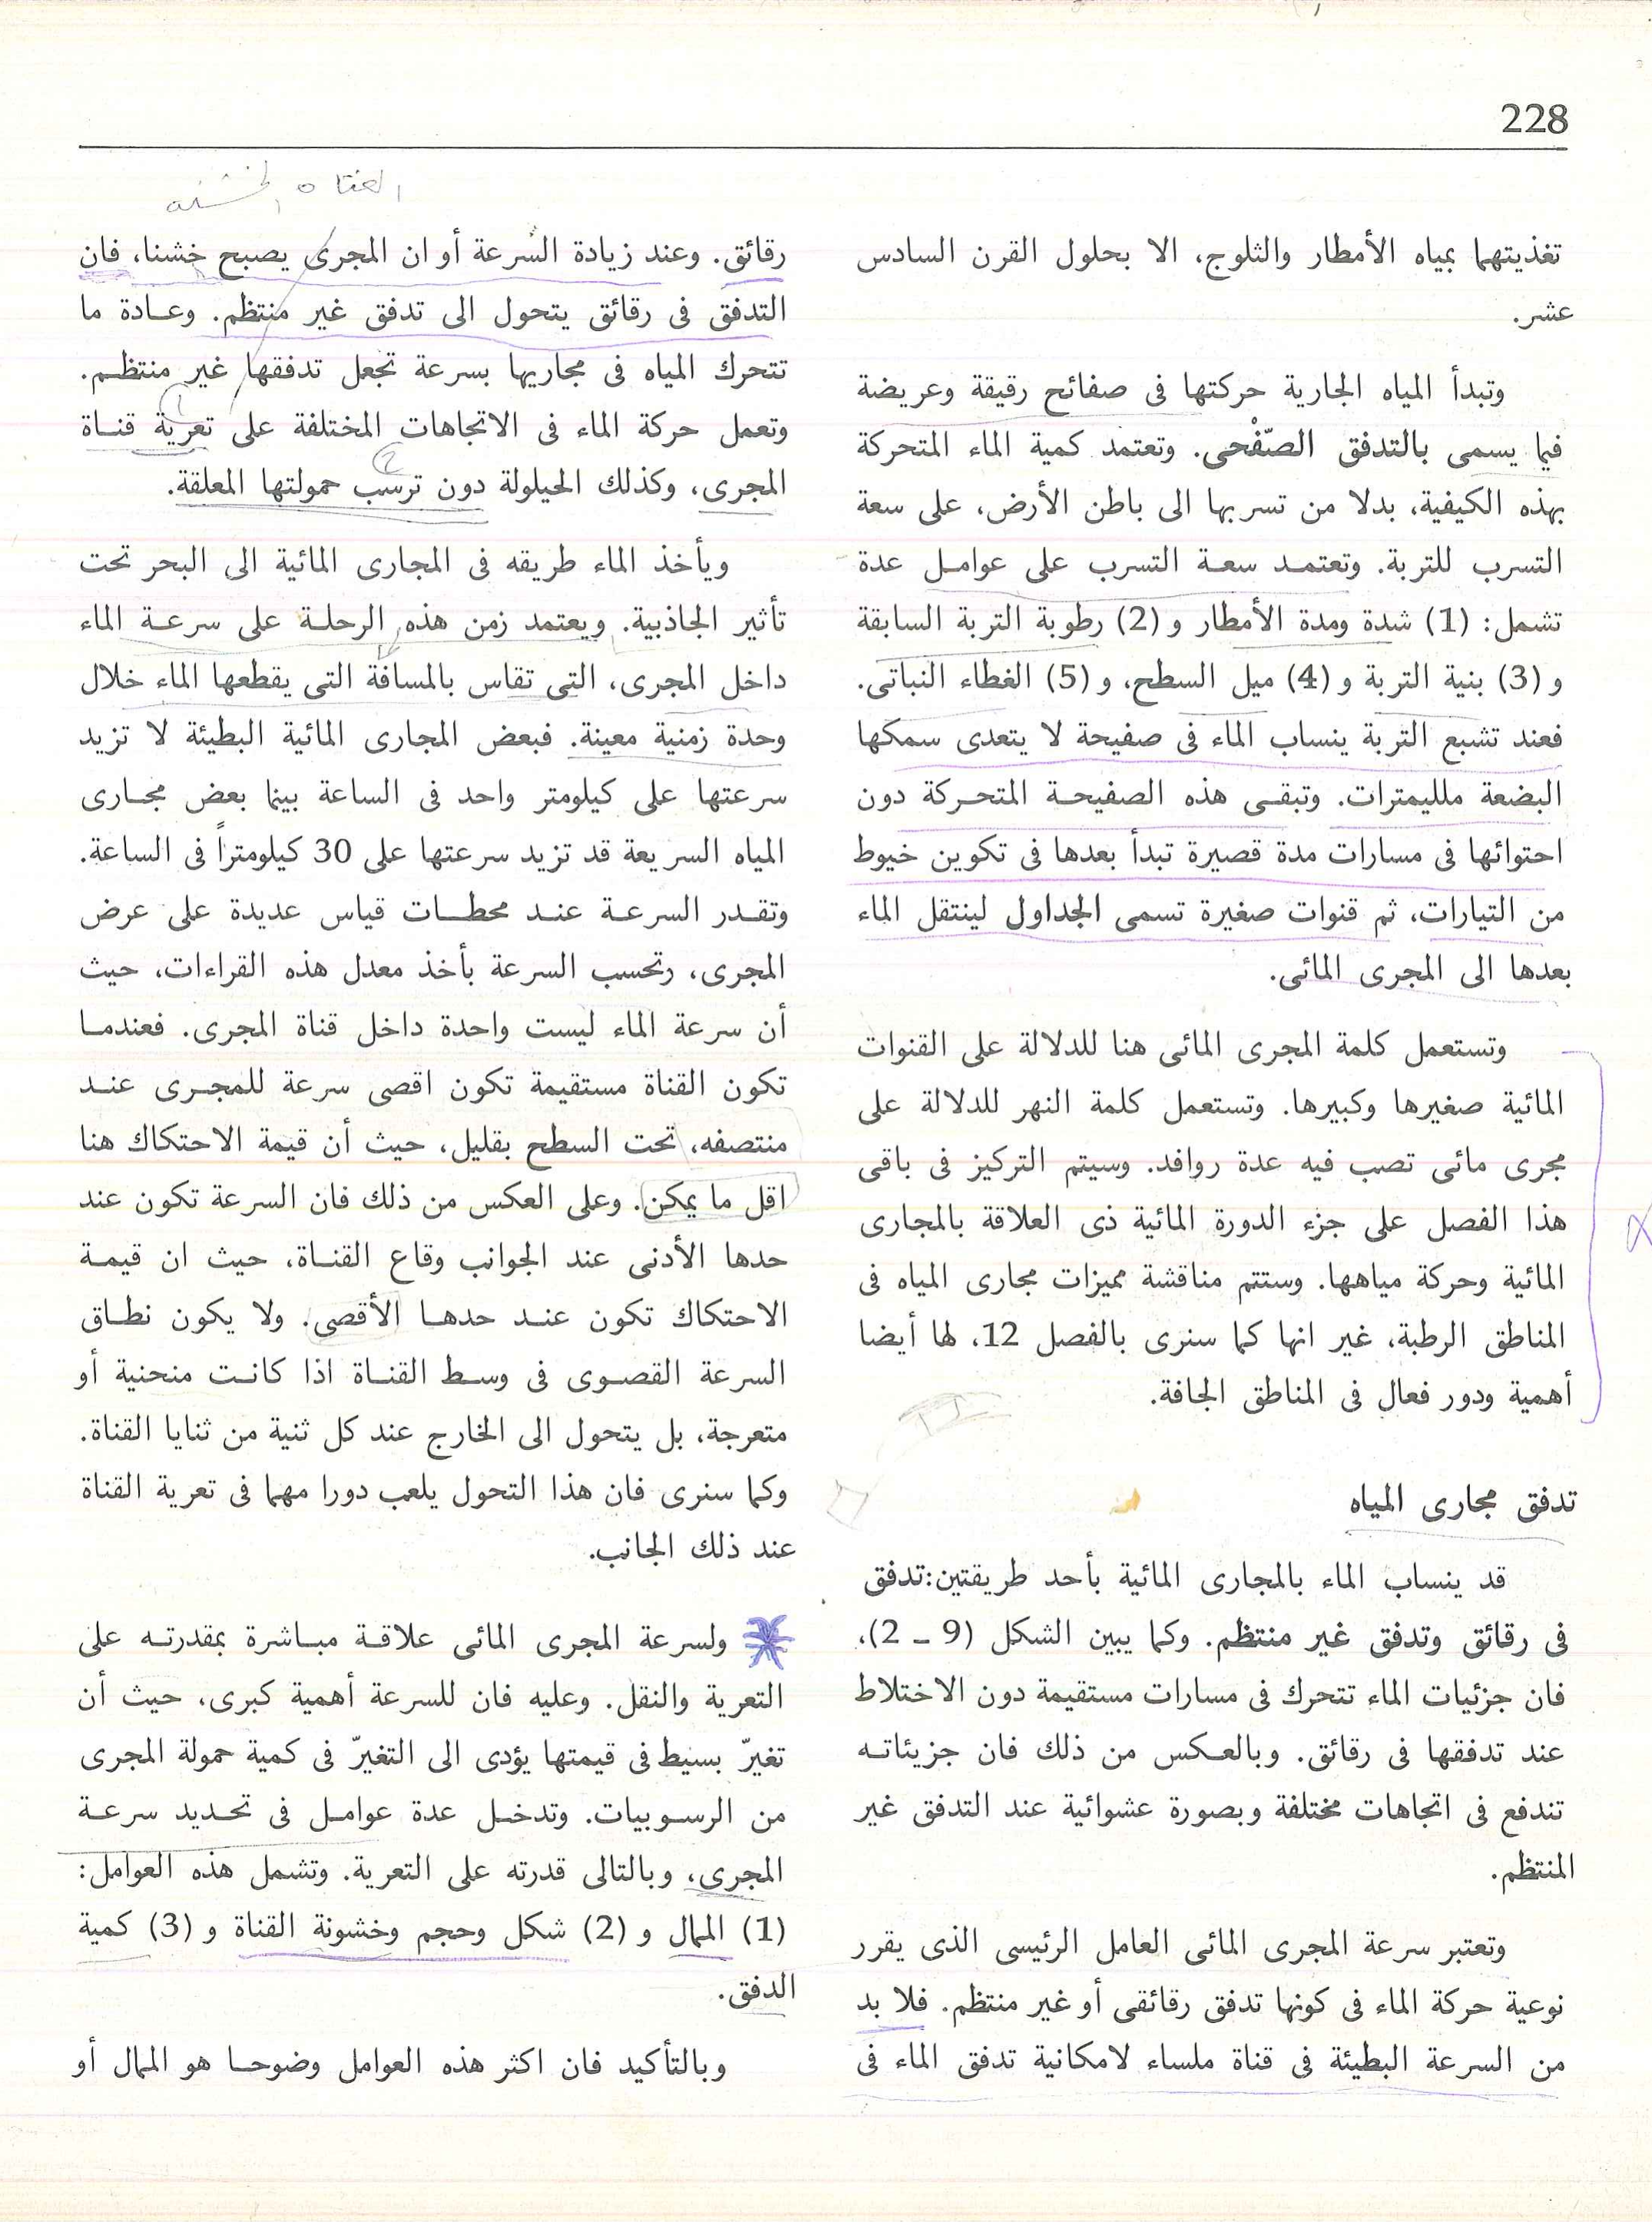 228
تغذيتهما بمياه الأمطار والثلوج، الا بحلول القرن السادس
عشر.
وتبدأ المياه الجارية حركتها فى صفائح رقيقة وعريضة
فيما يسمى بالتدفق الصّفْحى. وتعتمد كمية الماء المتحركة
بهذه الكيفية، بدلا من تسربها الى باطن الأرض، على سعة
التسرب للتربة. وتعتمد سعة التسرب على عوامل عدة
تشمل: (1) شدة ومدة الأمطار و (2) رطوبة التربة السابقة
و (3) بنية التربة و (4) ميل السطح، و (5) الغطاء النباتى.
فعند تشبع التربة ينساب الماء فى صفيحة لا يتعدى سمكها
البضعة ملليمترات. وتبقى هذه الصفيحة المتحركة دون
احتوائها فى مسارات مدة قصيرة تبدأ بعدها فى تكوين خيوط
من التيارات، ثم قنوات صغيرة تسمى الجداول لينتقل الماء
بعدها الى المجرى المائى.
وتستعمل كلمة المجرى المائى هنا للدلالة على القنوات
المائية صغيرها وكبيرها. وتستعمل كلمة النهر للدلالة على
مجرى مائى تصب فيه عدة روافد. وسيتم التركيز فى باقى
هذا الفصل على جزء الدورة المائية ذى العلاقة بالمجارى
المائية وحركة مياهها. وستتم مناقشة مميزات مجارى المياه فى
المناطق الرطبة، غير انها كما سنرى بالفصل 12، لها أيضا
أهمية ودور فعال فى المناطق الجافة.
تدفق مجارى المياه
قد ينساب الماء بالمجارى المائية بأحد طريقتين:تدفق
فى رقائق وتدفق غير منتظم. وكما يبين الشكل (9 ـ 2)،
فان جزئيات الماء تتحرك فى مسارات مستقيمة دون الاختلاط
عند تدفقها فى رقائق. وبالعكس من ذلك فان جزيئاته
تندفع فى اتجاهات مختلفة وبصورة عشوائية عند التدفق غير
المنتظم.
وتعتبر سرعة المجرى المائى العامل الرئيسى الذى يقرر
نوعية حركة الماء فى كونها تدفق رقائقى أو غير منتظم. فلا بد
من السرعة البطيئة فى قناة ملساء لامكانية تدفق الماء فى
القناه الخشنه
رقائق. وعند زيادة السرعة أو ان المجرى يصبح خشنا، فان
التدفق فى رقائق يتحول الى تدفق غير منتظم. وعادة ما
تتحرك المياه فى مجاريها بسرعة تجعل تدفقها غير منتظم.
وتعمل حركة الماء فى الاتجاهات المختلفة على تعرية قناة
المجرى، وكذلك الحيلولة دون ترسب حمولتها المعلقة.
ويأخذ الماء طريقه فى المجارى المائية الى البحر تحت
تأثير الجاذبية. ويعتمد زمن هذه الرحلة على سرعة الماء
داخل المجرى، التى تقاس بالمسافة التى يقطعها الماء خلال
وحدة زمنية معينة. فبعض المجارى المائية البطيئة لا تزيد
سرعتها على كيلومتر واحد فى الساعة بينما بعض مجارى
المياه السريعة قد تزيد سرعتها على 30 كيلومتراً فى الساعة.
وتقدر السرعة عند محطات قياس عديدة على عرض
المجرى، وتحسب السرعة بأخذ معدل هذه القراءات، حيث
أن سرعة الماء ليست واحدة داخل قناة المجرى. فعندما
تكون القناة مستقيمة تكون اقصى سرعة للمجرى عند
منتصفه، تحت السطح بقليل، حيث أن قيمة الاحتكاك هنا
اقل ما يمكن. وعلى العكس من ذلك فان السرعة تكون عند
حدها الأدنى عند الجوانب وقاع القناة، حيث ان قيمة
الاحتكاك تكون عند حدها الأقصى. ولا يكون نطاق
السرعة القصوى فى وسط القناة اذا كانت منحنية أو
متعرجة، بل يتحول الى الخارج عند كل ثنية من ثنايا القناة.
وكما سنرى فان هذا التحول يلعب دورا مهما فى تعرية القناة
عند ذلك الجانب.
ولسرعة المجرى المائى علاقة مباشرة بمقدرته على
التعرية والنقل. وعليه فان للسرعة أهمية كبرى، حيث أن
تغيرّ بسيط فى قيمتها يؤدى الى التغيرّ فى كمية حمولة المجرى
من الرسوبيات. وتدخل عدة عوامل فى تحديد سرعة
المجرى، وبالتالى قدرته على التعرية. وتشمل هذه العوامل:
(1) الممال و (2) شكل وحجم وخشونة القناة و (3) كمية
الدفق.
وبالتأكيد فان اكثر هذه العوامل وضوحا هو الممال أو